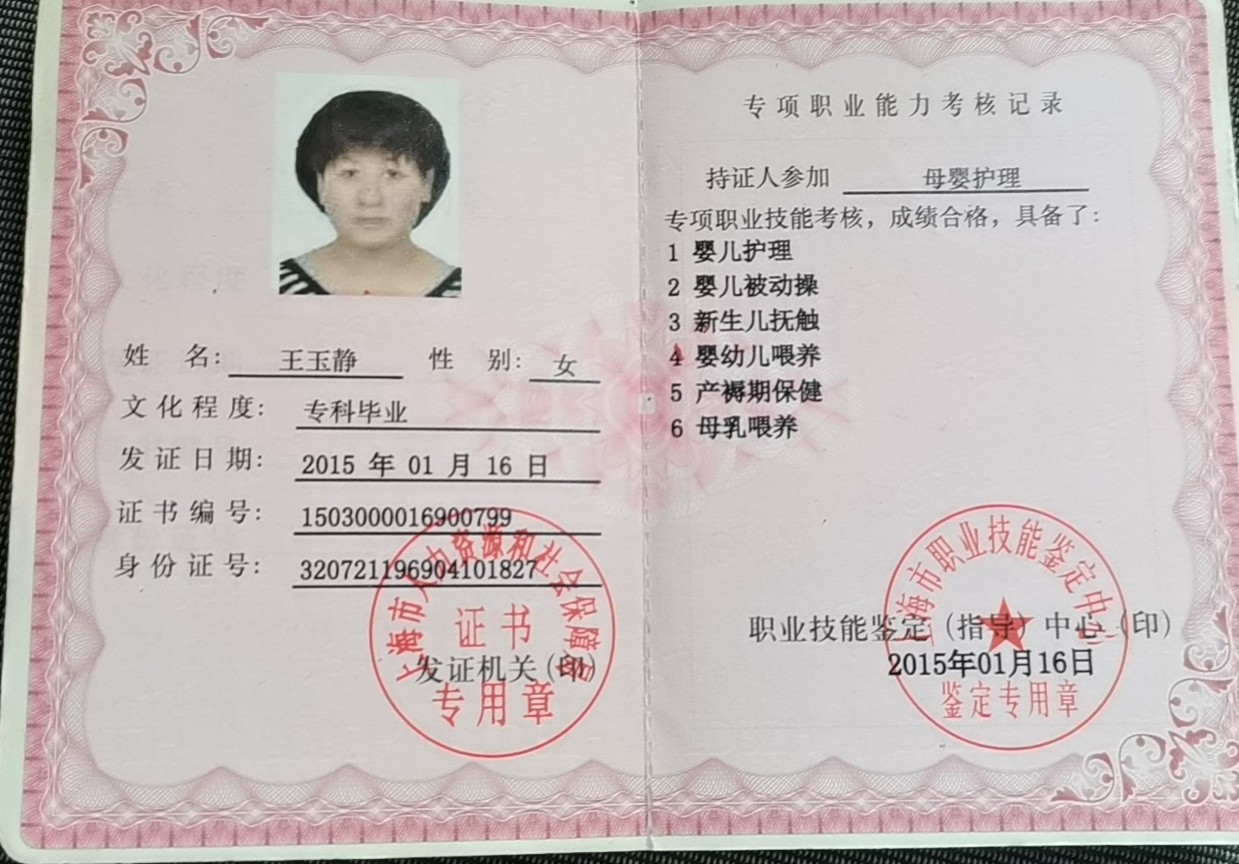 姓 名: 王玉静 性 别: 女
文化程度: 专科毕业
发证日期: 2015 年 01 月 16 日
证书编号: 1503000016900799
身份证号: 320721196904101827
上海市人力资源和社会保障局
证书
发证机关(印)
专用章
专项职业能力考核记录
持证人参加 母婴护理
专项职业技能考核，成绩合格，具备了:
1 婴儿护理
2 婴儿被动操
3 新生儿抚触
4 婴幼儿喂养
5 产褥期保健
6 母乳喂养
上海市职业技能鉴定中心
职业技能鉴定(指导)中心(印)
2015年01月16日
鉴定专用章